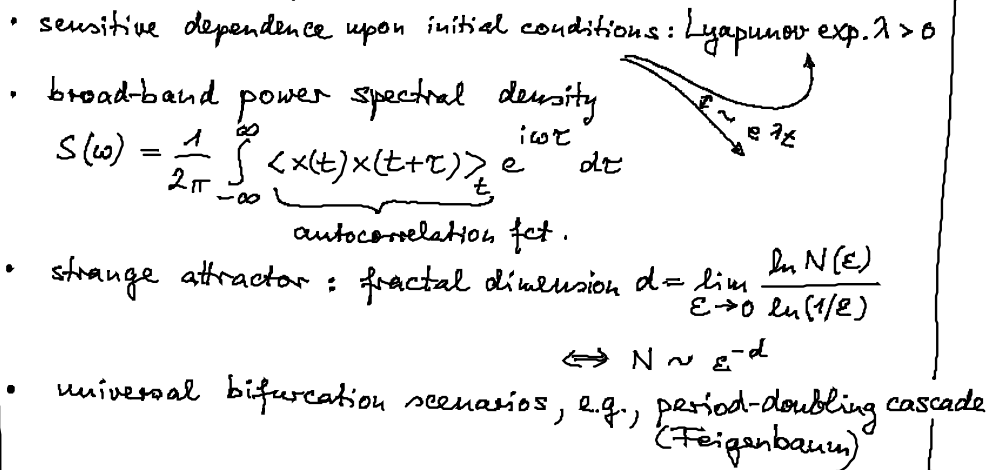 • sensitive dependence upon initial conditions: Lyapunov exp. λ > 0
• broad-band power spectral density
~ e^{λt}
S(ω) = \frac{1}{2π} \int_{-∞}^{∞} \underbrace{<x(t)x(t+τ)>_t} e^{iωτ} dτ
autocorrelation fct.
• strange attractor: fractal dimension d = \lim_{ε→0} \frac{ln N(ε)}{ln(1/ε)}
⟺ N ~ ε^{-d}
• universal bifurcation scenarios, e.g., period-doubling cascade
(Feigenbaum)